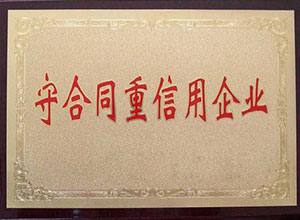 守合同重信用企业